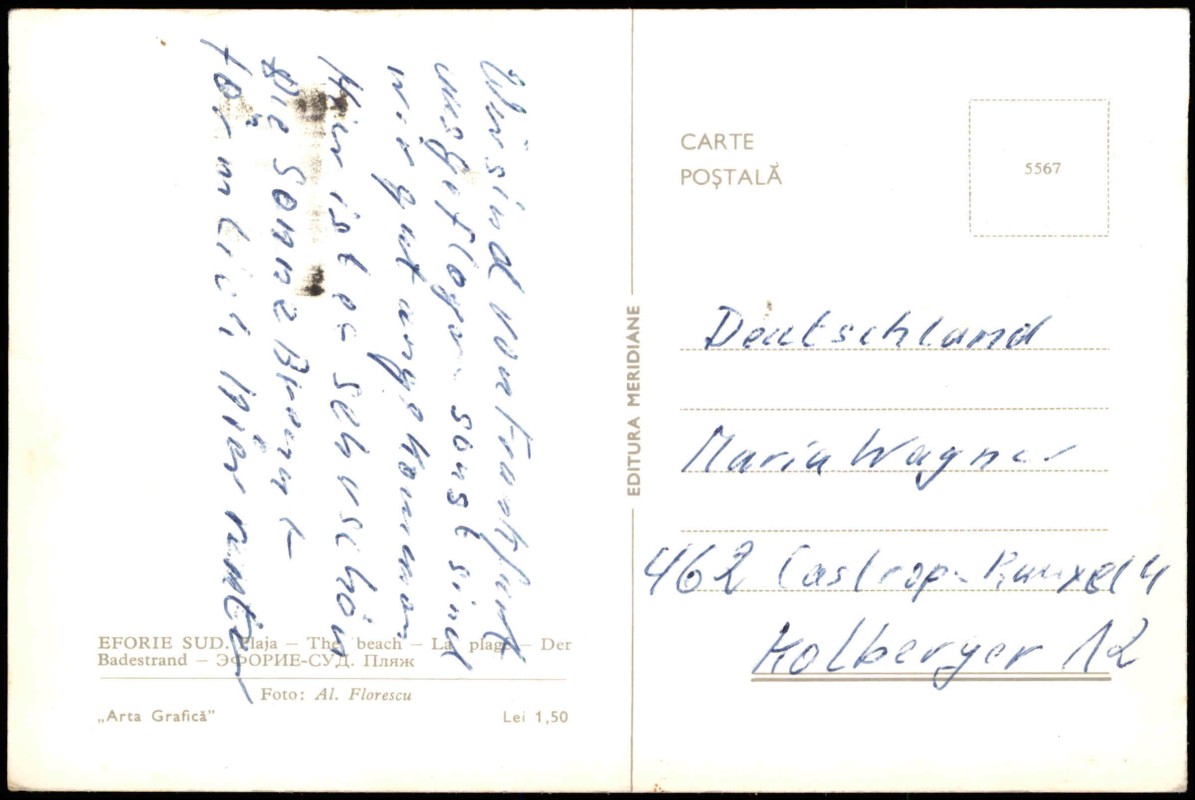 Wir sind von Frankfurt
ausgeflogen sonst sind
wir gut angekommen
Hier ist es seh uschön
die Sonne Brennt
förmlich hier runter
EFORIE SUD. Plaja – The beach – La plage – Der
Badestrand – ЭФОРИЕ-СУД. Пляж
Foto: Al. Florescu
„Arta Grafică”
Lei 1,50
EDITURA MERIDIANE
CARTE
POȘTALĂ
5567
Deutschland
Maria Wagner
462 Castrop-Rauxel 4
Kolberger 12